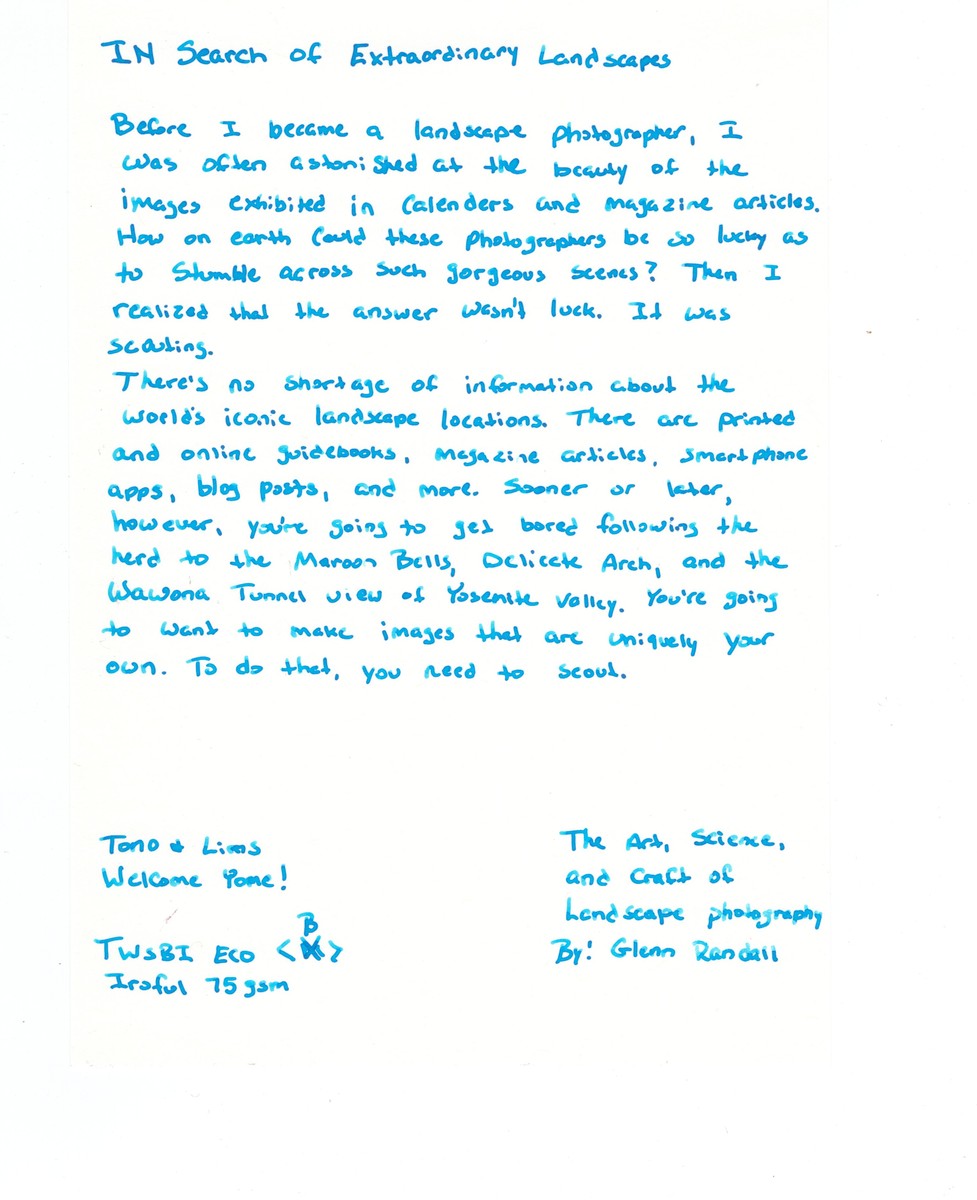 IN Search of Extraordinary Landscapes
Before I became a landscape photographer, I
was often astonished at the beauty of the
images exhibited in Calenders and magazine articles.
How on earth Could these photographers be so lucky as
to Stumble across such gorgeous scenes? Then I
realized that the answer wasn't luck. It was
scouting.
There's no shortage of information about the
world's iconic landscape locations. There are printed
and online guidebooks, magazine articles, smartphone
apps, blog posts, and more. Sooner or later,
however, you're going to get bored following the
herd to the Maroon Bells, Delicate Arch, and the
Wawona Tunnel view of Yosemite Valley. You're going
to want to make images that are uniquely your
own. To do that, you need to scout.
Tono & Lims
Welcome Yome!
TWSBI Eco <B>
Iroful 75gsm
The Art, Science,
and Craft of
Landscape photography
By: Glenn Randall